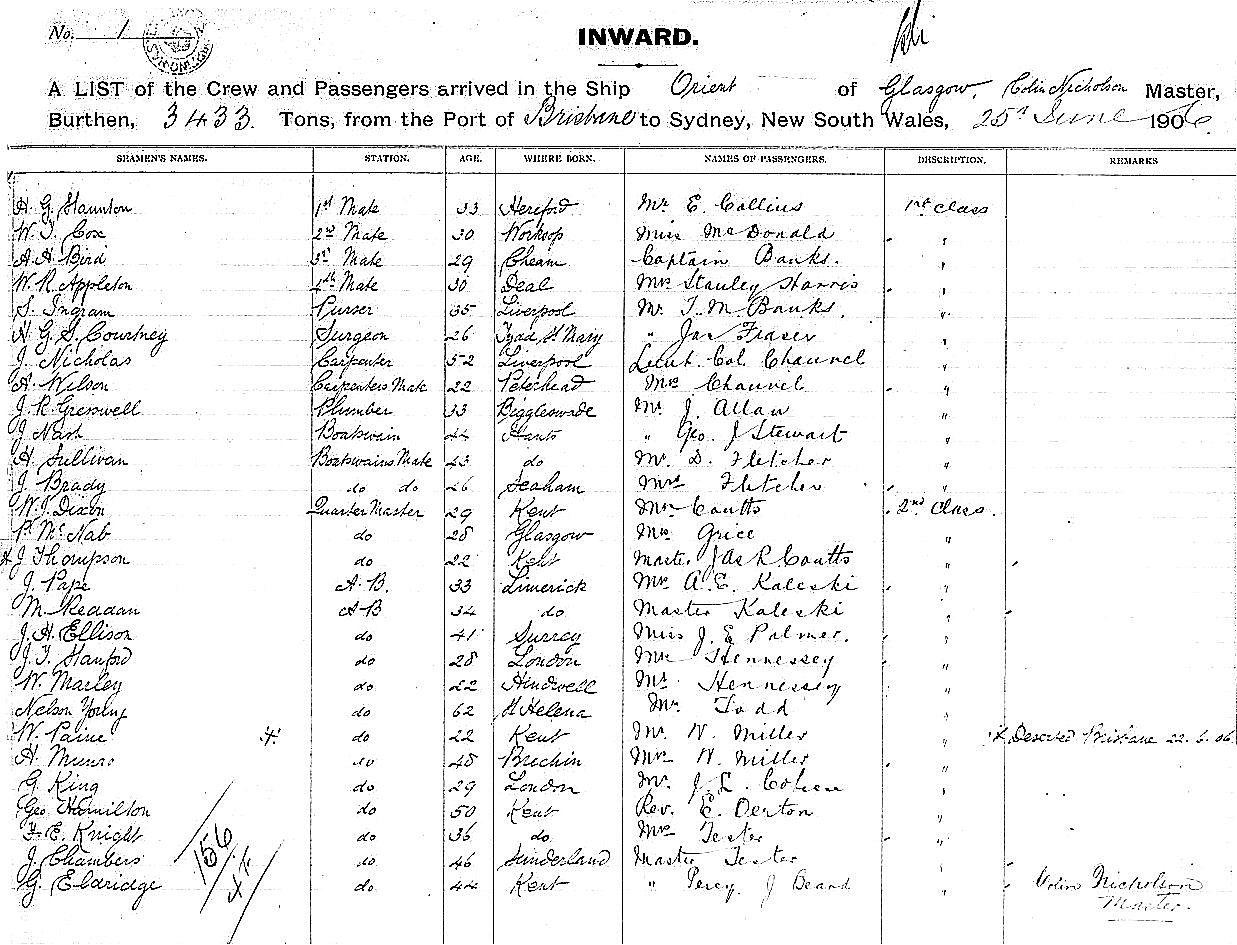 No. 1
INWARD.
A LIST of the Crew and Passengers arrived in the Ship Orient of Glasgow, Colin Nicholson Master,
Burthen, 3433 Tons, from the Port of Brisbane to Sydney, New South Wales, 25th June 1906.
SEAMEN'S NAMES. STATION. AGE. WHERE BORN. NAMES OF PASSENGERS. DESCRIPTION. REMARKS
H. G. Staunton 1st Mate 33 Hereford Mr E. Collins 1st Class
W. J. Cox 2nd Mate 30 Worksop Miss McDonald "
A. H. Bird 3rd Mate 29 Cheam Captain Banks. "
W. R. Appleton 4th Mate 30 Deal Mrs Stanley Harris "
S. Ingram Purser 35 Liverpool Mr. T. M. Banks. "
H. G. S. Courtney Surgeon 26 Tydd St Mary " Jas Fraser "
J. Nicholas Carpenter 52 Liverpool Lieut. Col. Chauvel "
A. Wilson Carpenters Mate 22 Peterhead Mrs Chauvel "
J. R. Gresswell Plumber 33 Biggleswade Mr. J. Allan "
J. Nash Boatswain 44 Hants " Geo. J Stewart "
H. Sullivan Boatswains Mate 43 do Mr. D. Fletcher "
J. Brady do do 26 Seaham Mrs Fletcher "
W. J. Dixon Quarter Master 29 Kent Mrs Coutts 2nd Class.
P. McNab do 28 Glasgow Mrs Grice "
x J. Thompson do 22 Kent Master Jas R Coutts "
J. Pape A.B. 33 Limerick Mrs A. E. Kaleski "
M. Readan A.B 34 do Master Kaleski "
J. H. Ellison do 41 Surrey Miss J. E Palmer. "
J. T. Stanford do 28 London Mrs Hennessey "
W. Marley do 22 Hindwell Mr. Hennessey "
Nelson Young do 62 St Helena Mr. Todd "
W. Paine x do 22 Kent Mr. W. Miller " x Deserted Brisbane 22.6.06
H. Munro do 48 Brechin Mrs W. Miller "
G. King do 29 London Mr. J. L. Cohen "
Geo. Hamilton do 50 Kent Rev. E. Oerton "
F. E. Knight do 36 do Mrs Tester "
J. Chambers do 46 Sunderland Master Tester "
G. Eldridge do 44 Kent " Percy J Beard " Colin Nicholson
Master.
156